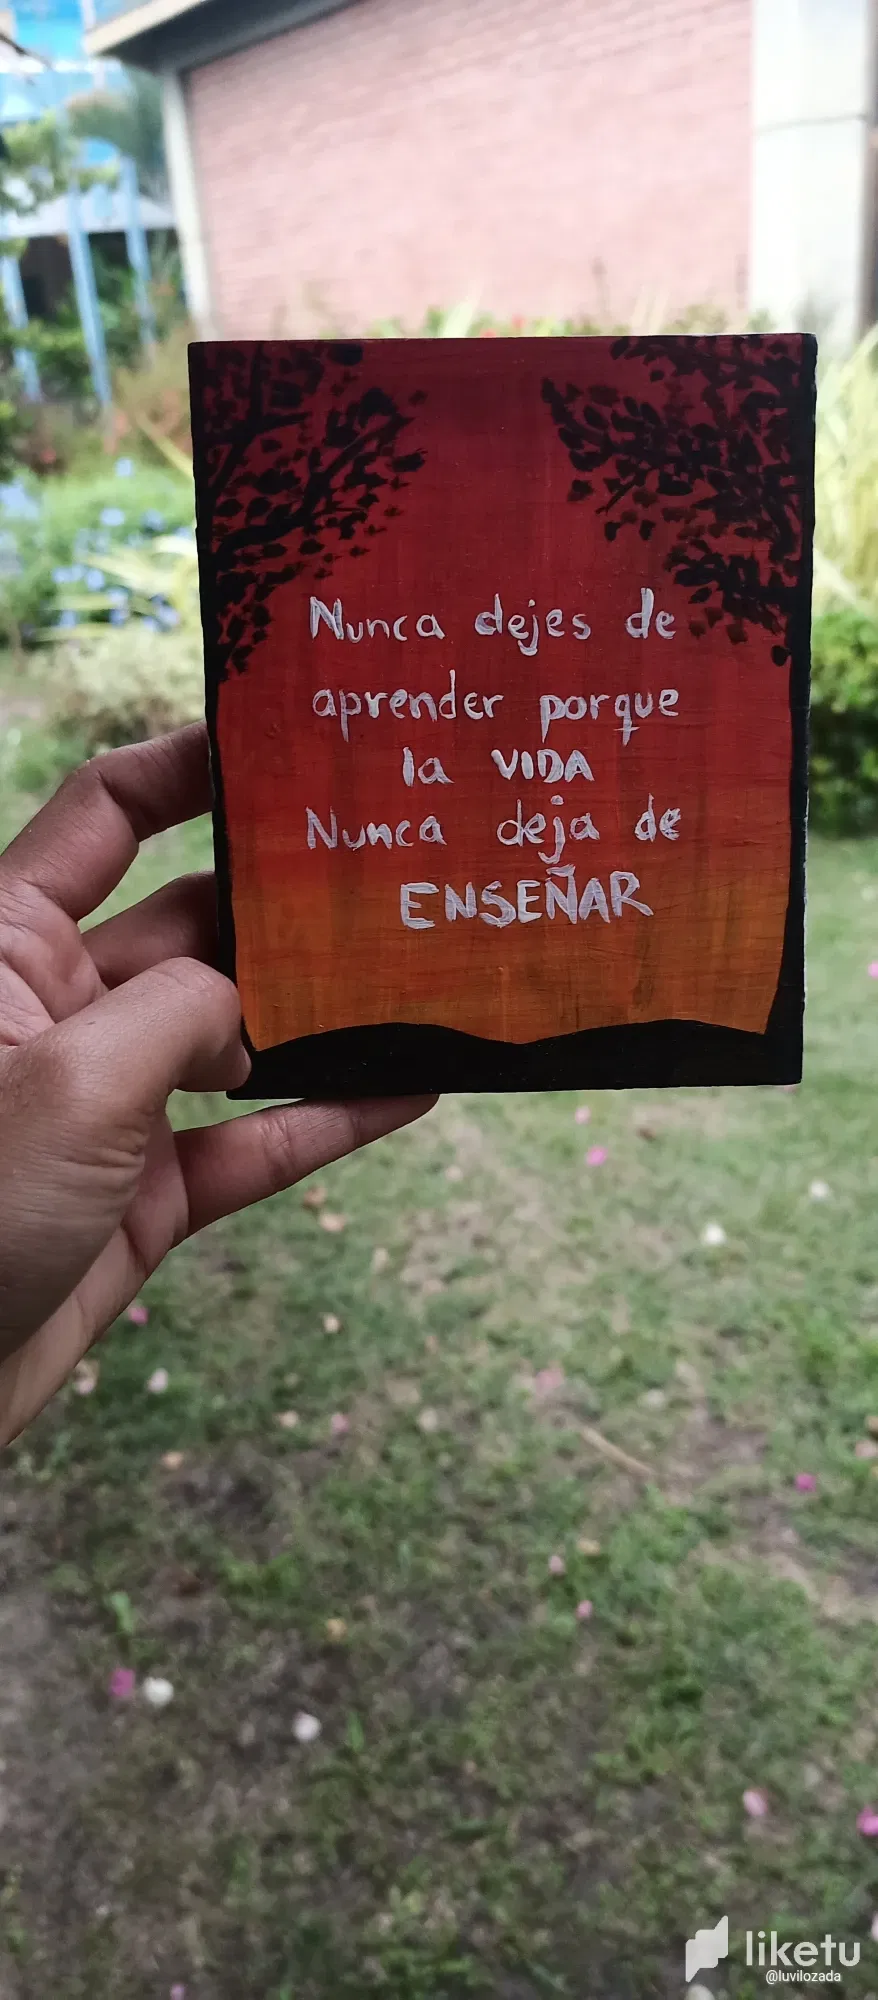 Nunca dejes de
aprender porque
la VIDA
Nunca deja de
ENSEÑAR
liketu
@luvilozada